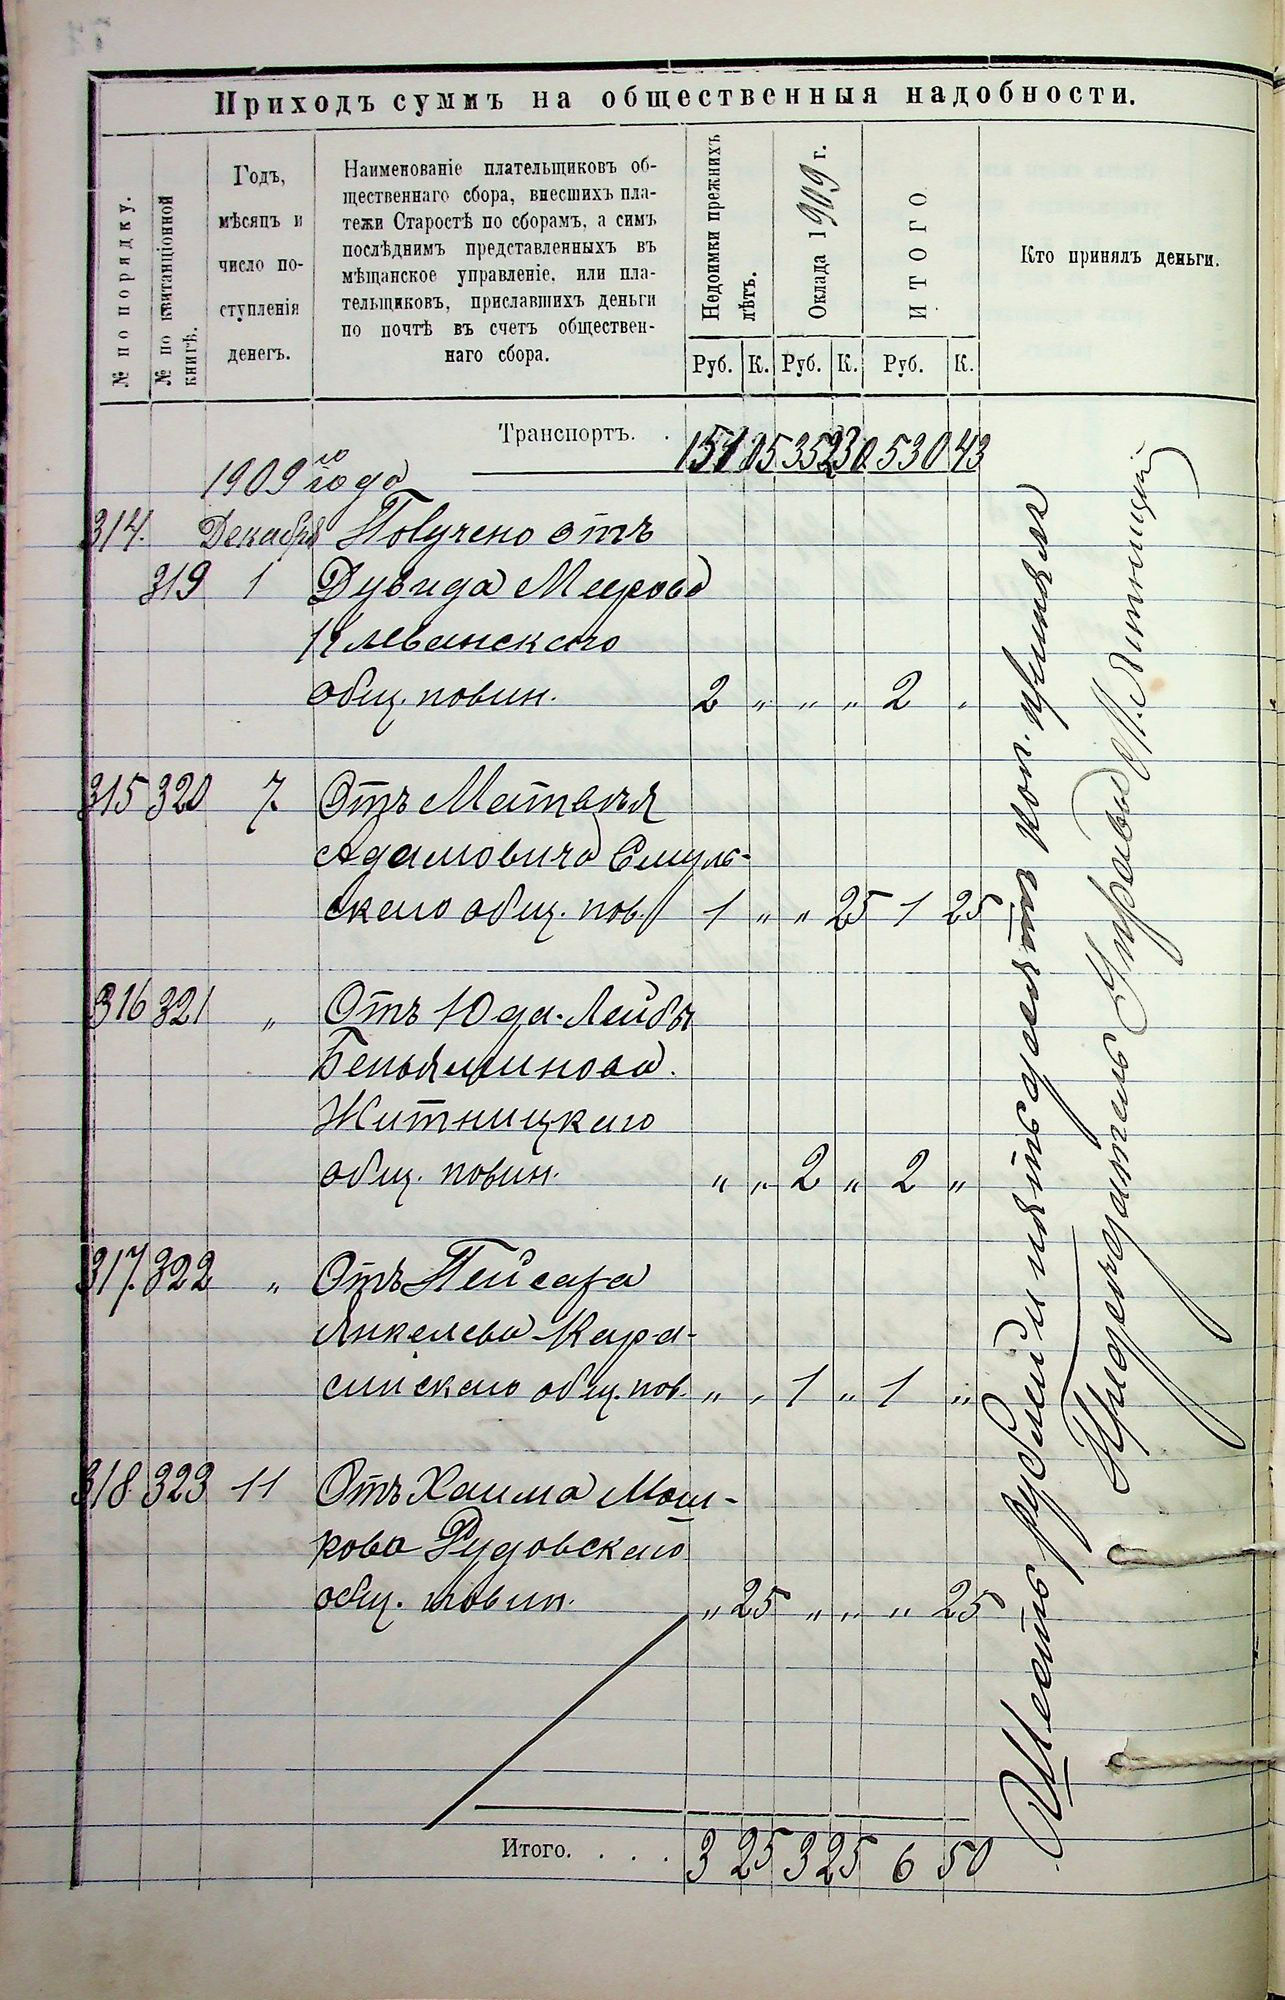 Приходъ суммъ на общественныя надобности.
№ по порядку.
№ по квитанціонной книгѣ.
Годъ,
мѣсяцъ и
число по-
ступленія
денегъ.
Наименованіе плательщиковъ об-
щественнаго сбора, внесшихъ пла-
тежи Старостѣ по сборамъ, а симъ
послѣднимъ представленныхъ въ
мѣщанское управленіе, или пла-
тельщиковъ, приславшихъ деньги
по почтѣ въ счетъ обществен-
наго сбора.
Недоимки прежнихъ лѣтъ.
Оклада 1909 г.
ИТОГО
Кто принялъ деньги.
Руб. К. Руб. К. Руб. К.
Транспортъ. .
530 43
1909 го года
314. Декабря Получено отъ
319 1 Дувида Меерова
Клеванскаго
общ. повин. 2 „ „ „ 2 „
315 320 7 Отъ
Адамовича
скаго общ. пов. 1 „ „ 25 1 25
316 321 „ Отъ Юда-Лейбы
Беньяминова
Житницкаго
общ. повин. „ „ 2 „ 2 „
317. 322 „ Отъ Пейсаха
Янкелева Кара-
синскаго общ. пов. „ „ 1 „ 1 „
318 323 11 Отъ Хаима Мош-
кова Рудовскаго
общ. повин. „ 25 „ „ „ 25
Итого. . . . 3 25 3 25 6 50
Шесть рублей и пятьдесятъ коп. принялъ
Предсѣдатель Управы М. Житницкій